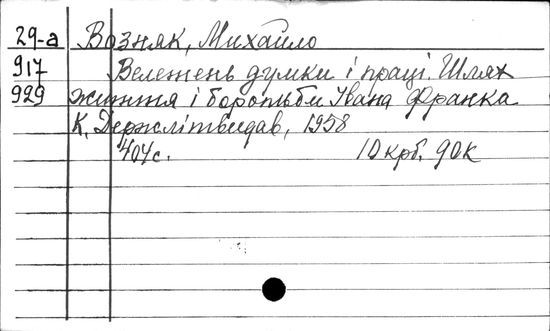 29-а Возняк, Михайло
917 Велетень думки і праці. Шлях
929 життя і боротьби Івана Франка
К, Держлітвидав, 1958
404с. 10крб. 90к